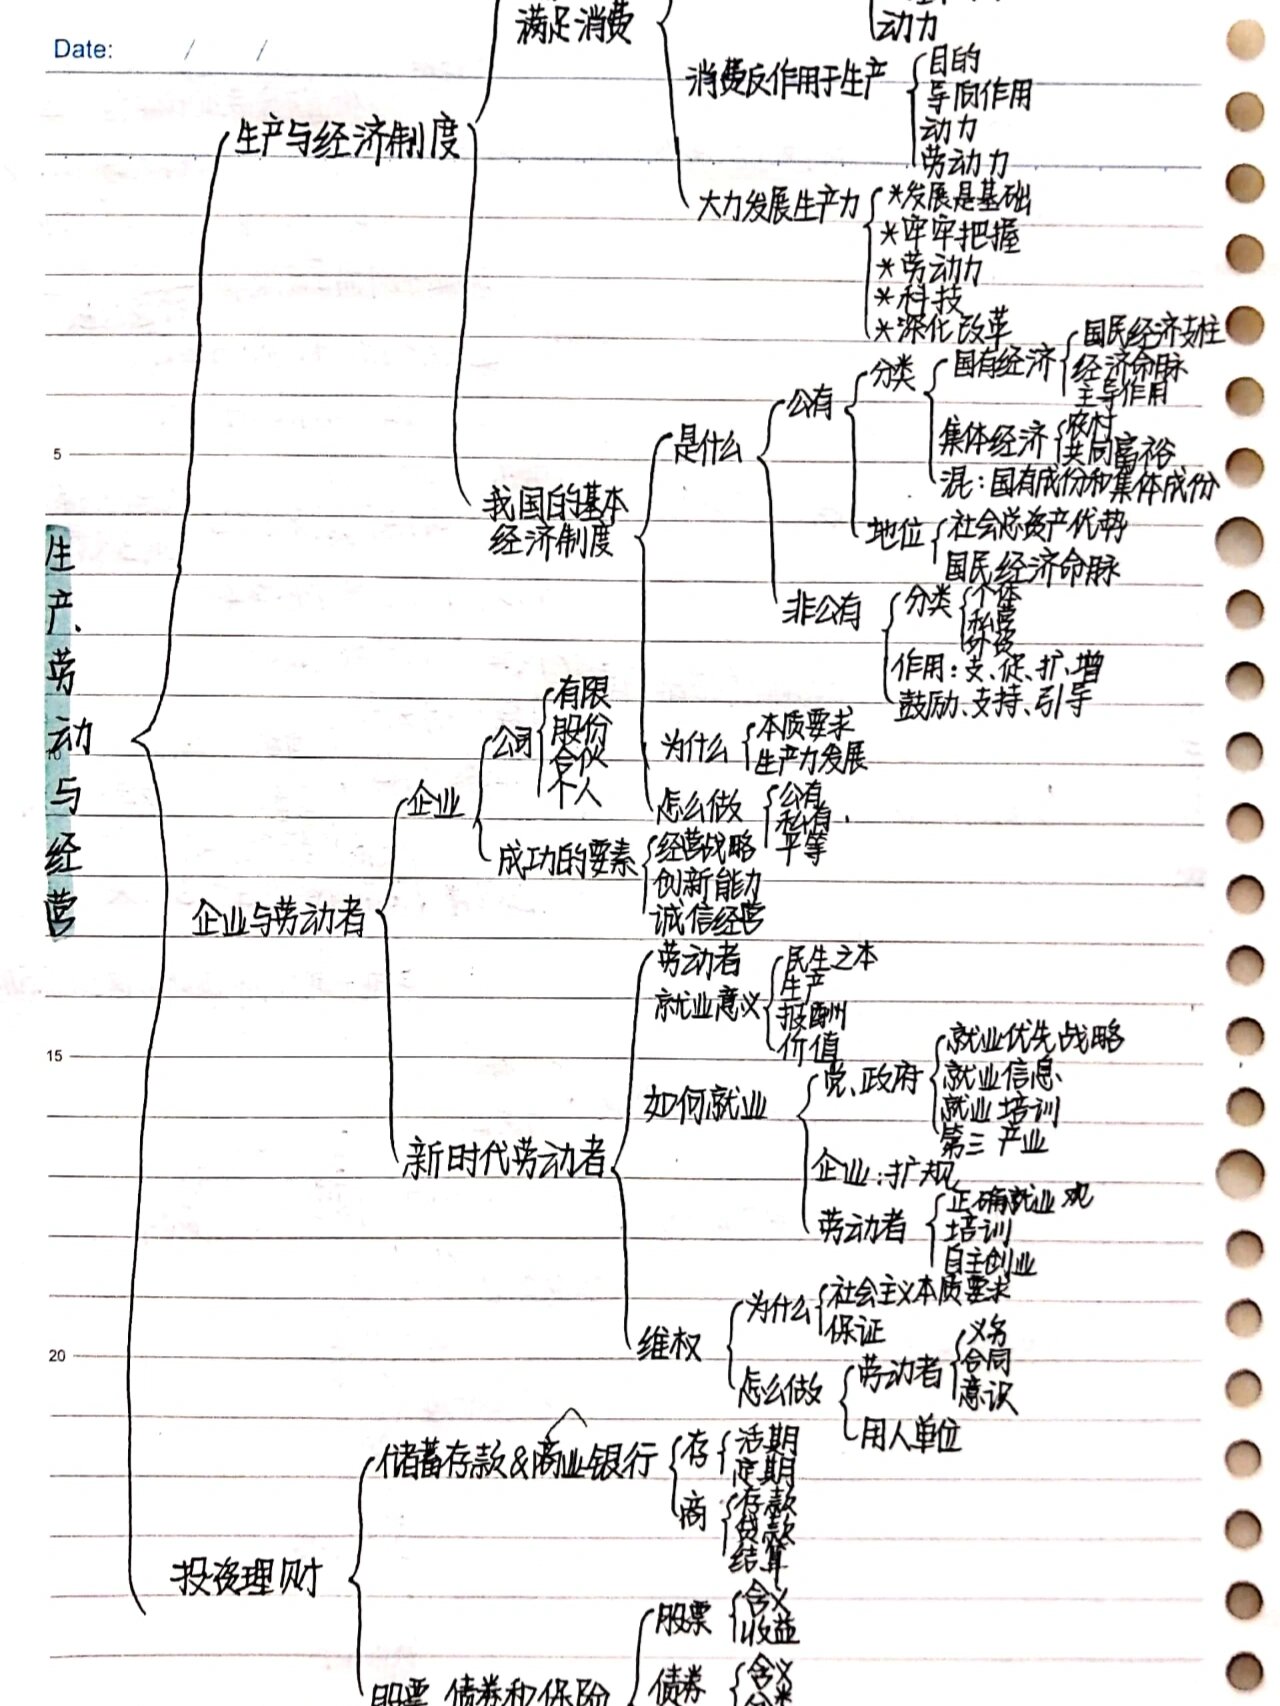 Date: / /
满足消费
动力
消费反作用于生产
目的
导向作用
动力
劳动力
生产与经济制度
大力发展生产力
*发展是基础
*牢牢把握
*劳动力
*科技
*深化改革
我国的基本
经济制度
是什么
公有
分类
国有经济
国民经济支柱
经济命脉
主导作用
集体经济
农村
共同富裕
混:国有成份和集体成份
地位
社会总资产优势
国民经济命脉
非公有
分类
个体
私营
外资
作用:支、促、扩、增
鼓励、支持、引导
为什么
本质要求
生产力发展
怎么做
公有
私有.
平等
5
生产、劳动与经营
10
企业与劳动者
企业
公司
有限
股份
合伙
个人
成功的要素
经营战略
创新能力
诚信经营
新时代劳动者
劳动者
就业意义
民生之本
生产
报酬
价值
15
如何就业
党、政府
就业优先战略
就业信息
就业培训
第三产业
企业:扩规
劳动者
正确就业观
培训
自主创业
维权
为什么
社会主义本质要求
保证
怎么做
劳动者
义务
合同
意识
用人单位
20
投资理财
储蓄存款&商业银行
存
活期
定期
商
存款
贷款
结算
股票 债券和保险
股票
含义
收益
债券
含义